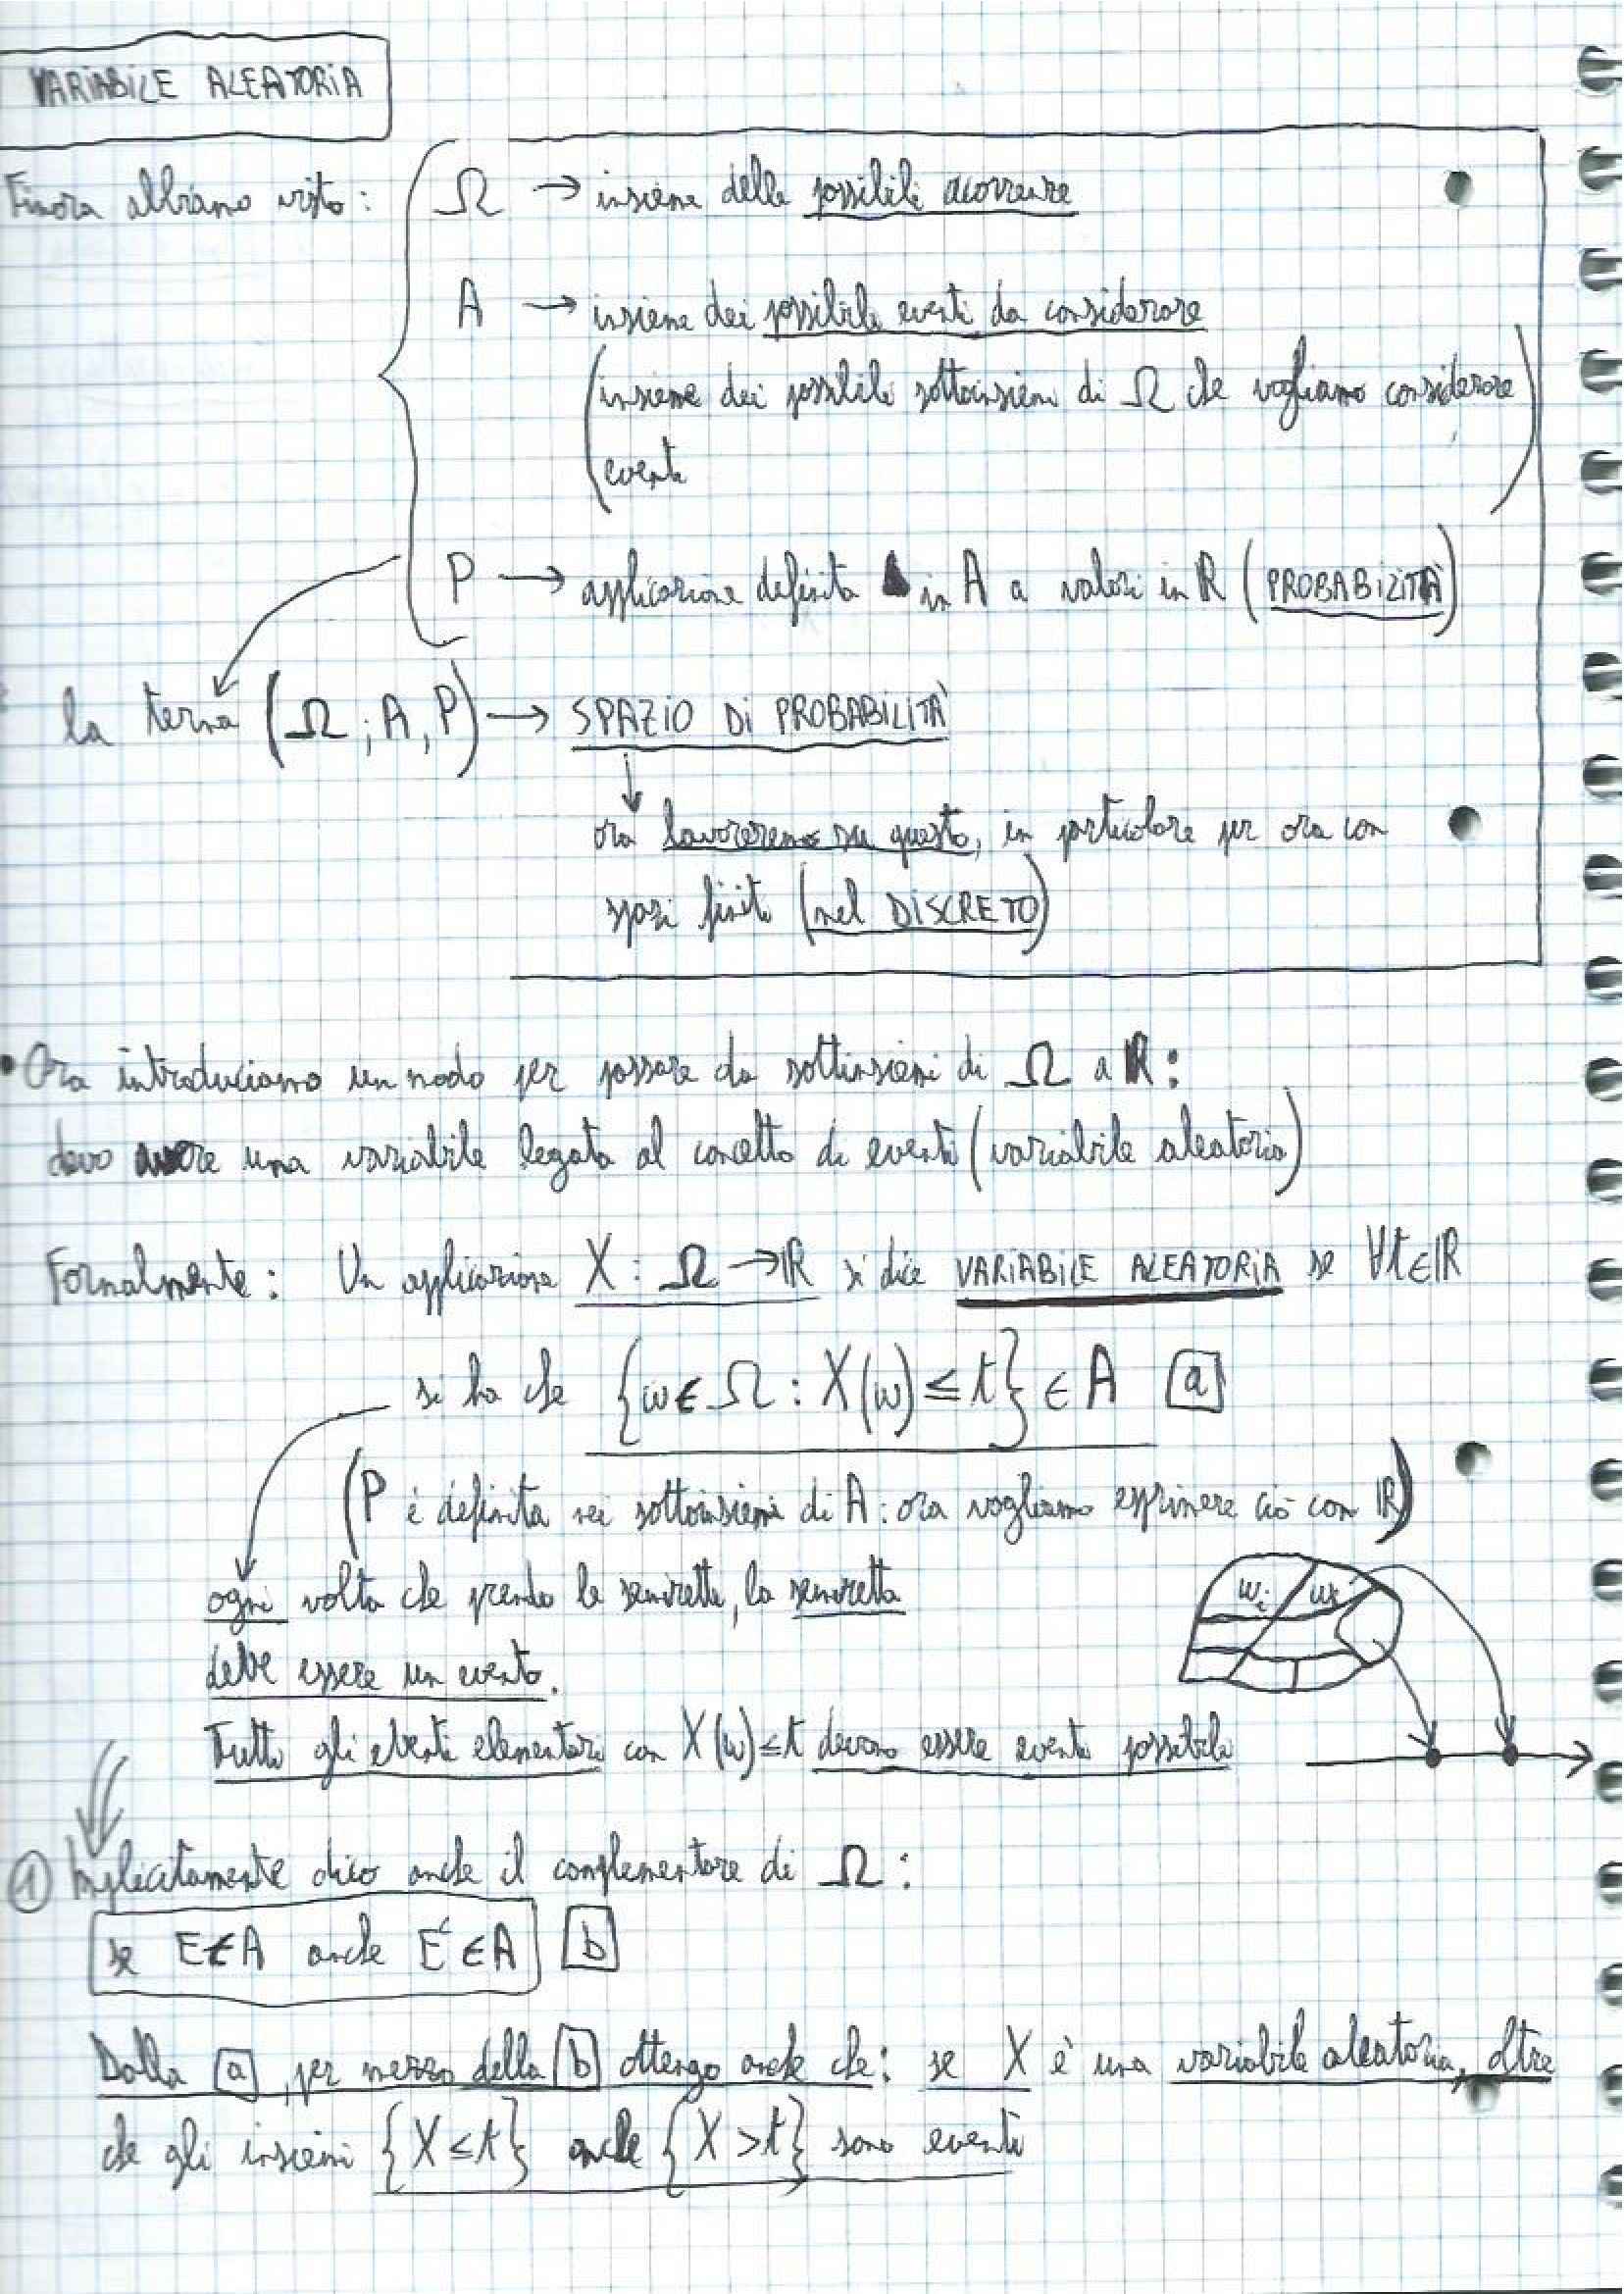 VARIABILE ALEATORIA
Finora abbiamo visto:
Ω → insieme delle possibili occorrenze
A → insieme dei possibili eventi da considerare
(insieme dei possibili sottoinsiemi di Ω che vogliamo considerare
eventi)
P → applicazione definita in A a valori in R (PROBABILITÀ)
la terna (Ω; A, P) → SPAZIO DI PROBABILITÀ
↓
ora lavoreremo su questo, in particolare per ora con
spazi finiti (nel DISCRETO)
• Ora introduciamo un modo per passare da sottinsiemi di Ω a R:
devo avere una variabile legata al concetto di eventi (variabile aleatoria)
Formalmente: Un applicazione X: Ω → R si dice VARIABILE ALEATORIA se ∀t∈R
si ha che {ω∈Ω : X(ω) ≤ t} ∈ A a
(P è definita nei sottoinsiemi di A: ora vogliamo esprimere ciò con R)
ogni volta che prendo le semirette, la semiretta
ωi ωk
debe essere un evento.
Tutti gli eventi elementari con X(ω) ≤ t devono essere eventi possibili
1 Implicitamente dico anche il complementare di Ω:
se E∈A anche Eᶜ∈A b
Dalla a, per mezzo della b ottengo anche che: se X è una variabile aleatoria, oltre
che gli insiemi {X ≤ t} anche {X > t} sono eventi